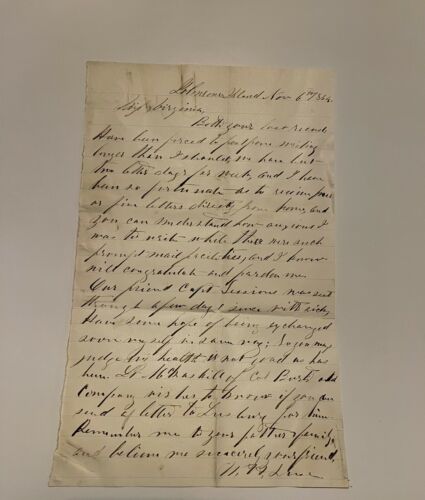 Johnsons Island Nov 6th 1864.
Miss Virginia,
Both your last recd.
Have been forced to postpone writing
longer than I should, we have but
two letter days per week, and I have
been so fortunate as to receive four
or five letters directly from home, and
you can understand how anxious I
was to write while there were such
prompt mail facilities, and I know
will congratulate and pardon me.
Our friend Capt Sessions was sent
through a few days since with sick,
Have some hope of being exchanged
soon myself in same way; so you may
judge my health is not good as has
been. Lt. of Col
Company wishes to know if you can
send a letter to for him.
Remember me to your father's family,
and believe me sincerely your friend,